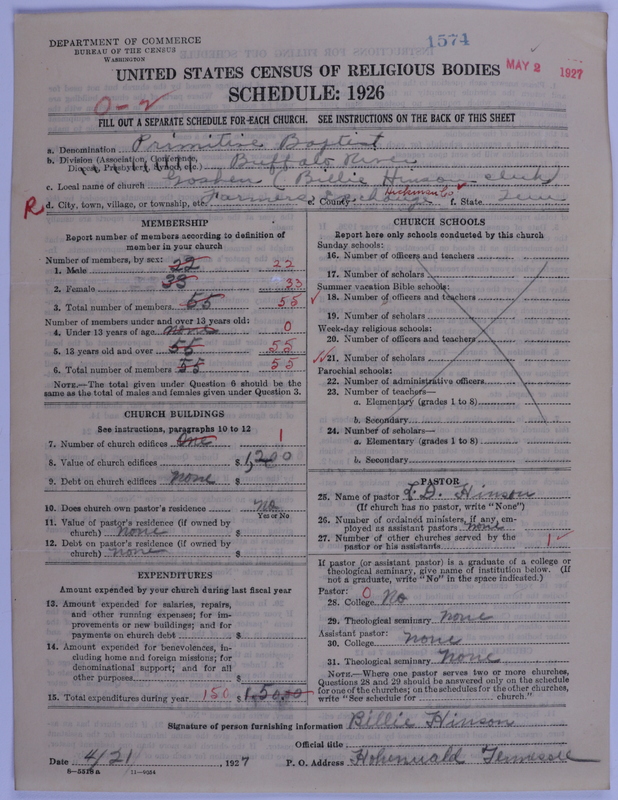 DEPARTMENT OF COMMERCE
BUREAU OF THE CENSUS
WASHINGTON
1574
MAY 2 1927
UNITED STATES CENSUS OF RELIGIOUS BODIES
SCHEDULE: 1926
0-2
FILL OUT A SEPARATE SCHEDULE FOR EACH CHURCH. SEE INSTRUCTIONS ON THE BACK OF THIS SHEET
a. Denomination Primitive Baptist
b. Division (Association, Conference, Buffalo River
Diocese, Presbytery, Synod, etc.)
c. Local name of church Goshen (Billie Hinson clerk)
R d. City, town, village, or township, etc. Farmers Exchange e. County Hickman Co f. State Tenn
MEMBERSHIP
Report number of members according to definition of
member in your church
Number of members, by sex:
1. Male 22 22
2. Female 33 33
3. Total number of members 55 55
Number of members under and over 13 years old:
4. Under 13 years of age none 0
5. 13 years old and over 55 55
6. Total number of members 55 55
NOTE.—The total given under Question 6 should be the
same as the total of males and females given under Question 3.
CHURCH BUILDINGS
See instructions, paragraphs 10 to 12
7. Number of church edifices One 1
8. Value of church edifices $ 1,200
9. Debt on church edifices none $
10. Does church own pastor's residence no
Yes or No
11. Value of pastor's residence (if owned by
church) none $
12. Debt on pastor's residence (if owned by
church) none $
EXPENDITURES
Amount expended by your church during last fiscal year
13. Amount expended for salaries, repairs,
and other running expenses; for im-
provements or new buildings; and for
payments on church debt $
14. Amount expended for benevolences, in-
cluding home and foreign missions; for
denominational support; and for all
other purposes $
15. Total expenditures during year 150 $ 150.00
CHURCH SCHOOLS
Report here only schools conducted by this church
Sunday schools:
16. Number of officers and teachers
17. Number of scholars
Summer vacation Bible schools:
18. Number of officers and teachers
19. Number of scholars
Week-day religious schools:
20. Number of officers and teachers
21. Number of scholars
Parochial schools:
22. Number of administrative officers
23. Number of teachers—
a. Elementary (grades 1 to 8)
b. Secondary
24. Number of scholars—
a. Elementary (grades 1 to 8)
b. Secondary
PASTOR
25. Name of pastor L. D. Hinson
(If church has no pastor, write "None")
26. Number of ordained ministers, if any, em-
ployed as assistant pastors none
27. Number of other churches served by the
pastor or his assistants 1
If pastor (or assistant pastor) is a graduate of a college or
theological seminary, give name of institution below. (If
not a graduate, write "No" in the space indicated.)
Pastor: 0
28. College No
29. Theological seminary none
Assistant pastor:
30. College none
31. Theological seminary none
NOTE.—Where one pastor serves two or more churches,
Questions 28 and 29 should be answered only on the schedule
for one of the churches; on the schedules for the other churches,
write "See schedule for church."
Signature of person furnishing information Billie Hinson
Official title
Date 4/21, 1927 P. O. Address Hohenwald Tennessee
8-5318 a 11-9054